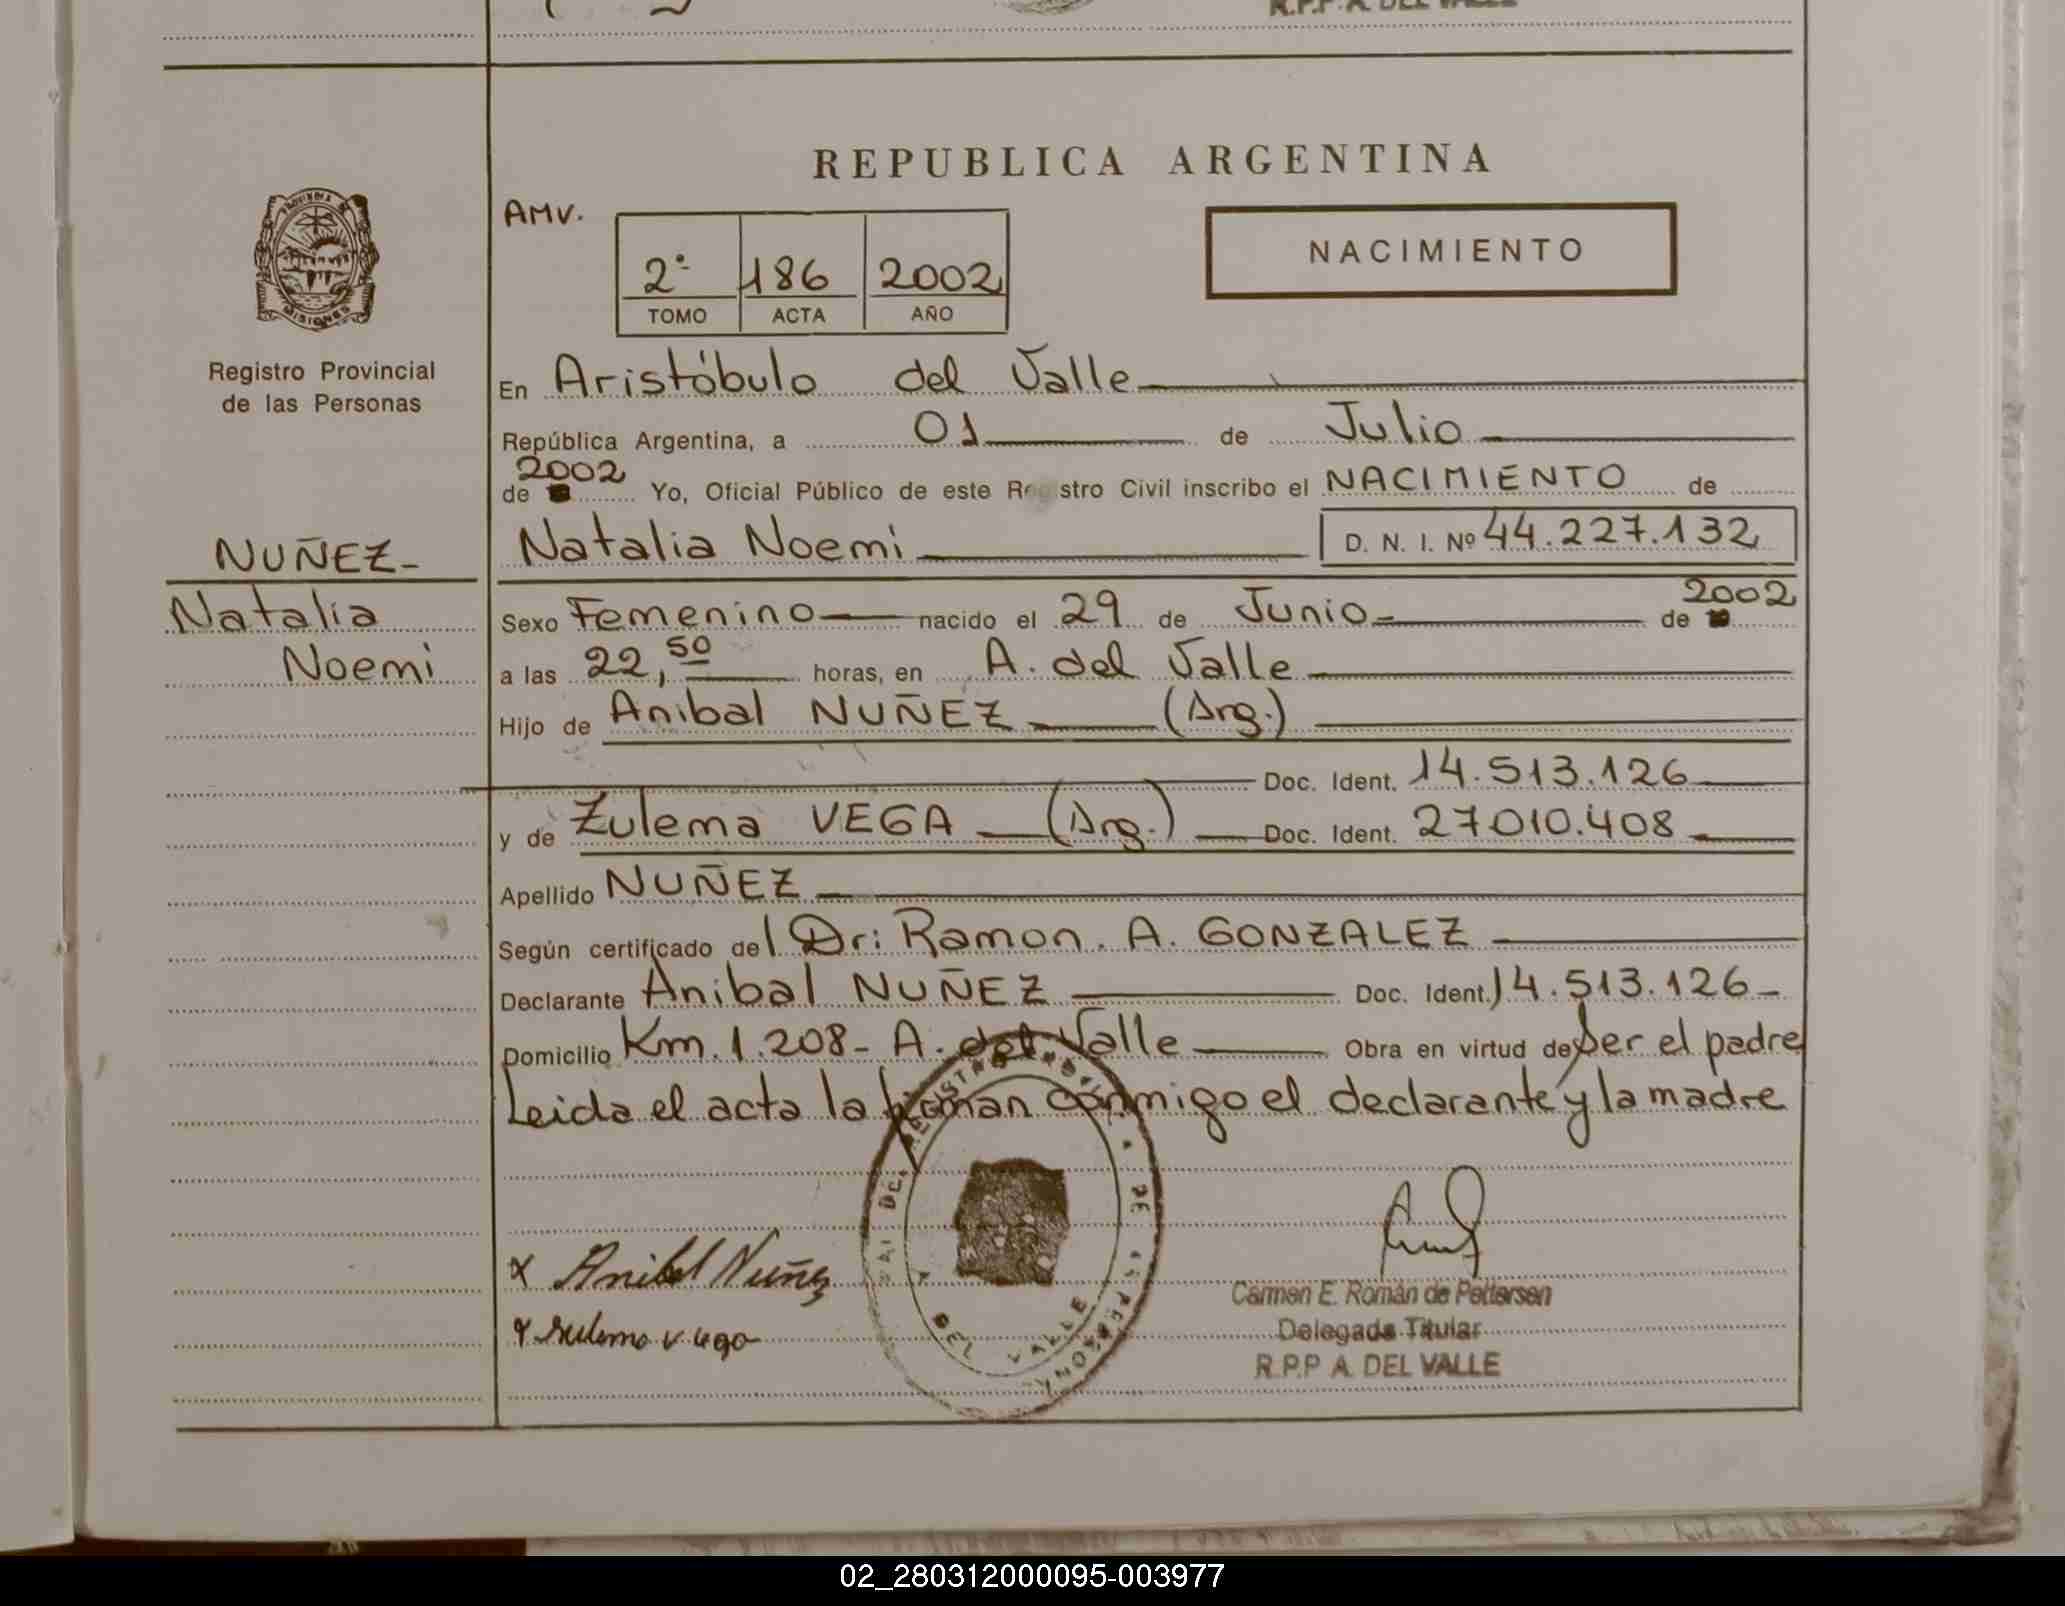 R.P.P A. DEL VALLE
REPUBLICA ARGENTINA
AMV.
2° 186 2002
TOMO ACTA AÑO
NACIMIENTO
PROVINCIA DE
MISIONES
Registro Provincial
de las Personas
NUÑEZ-
Natalia
Noemi
En Aristóbulo del Valle
República Argentina, a 01 de Julio
2002
de Yo, Oficial Público de este Registro Civil inscribo el NACIMIENTO de
Natalia Noemi D. N. I. Nº 44.227.132
2002
Sexo Femenino nacido el 29 de Junio de
a las 22,50 horas, en A. del Valle
Hijo de Anibal NUÑEZ (Arg.)
Doc. Ident. 14.513.126
y de Zulema VEGA (Arg.) Doc. Ident. 27010.408
Apellido NUÑEZ
Según certificado del Dr: Ramon. A. GONZALEZ
Declarante Anibal NUÑEZ Doc. Ident. 14.513.126
Domicilio Km. 1.208- A. del Valle Obra en virtud de Ser el padre
Leida el acta la firman conmigo el declarante y la madre
x Anibal Nuñez
DEL REGISTRO DE LAS PERSONAS
DEL VALLE
Carmen E. Román de Pettersen
Delegada Titular
R.P.P A. DEL VALLE
02_280312000095-003977